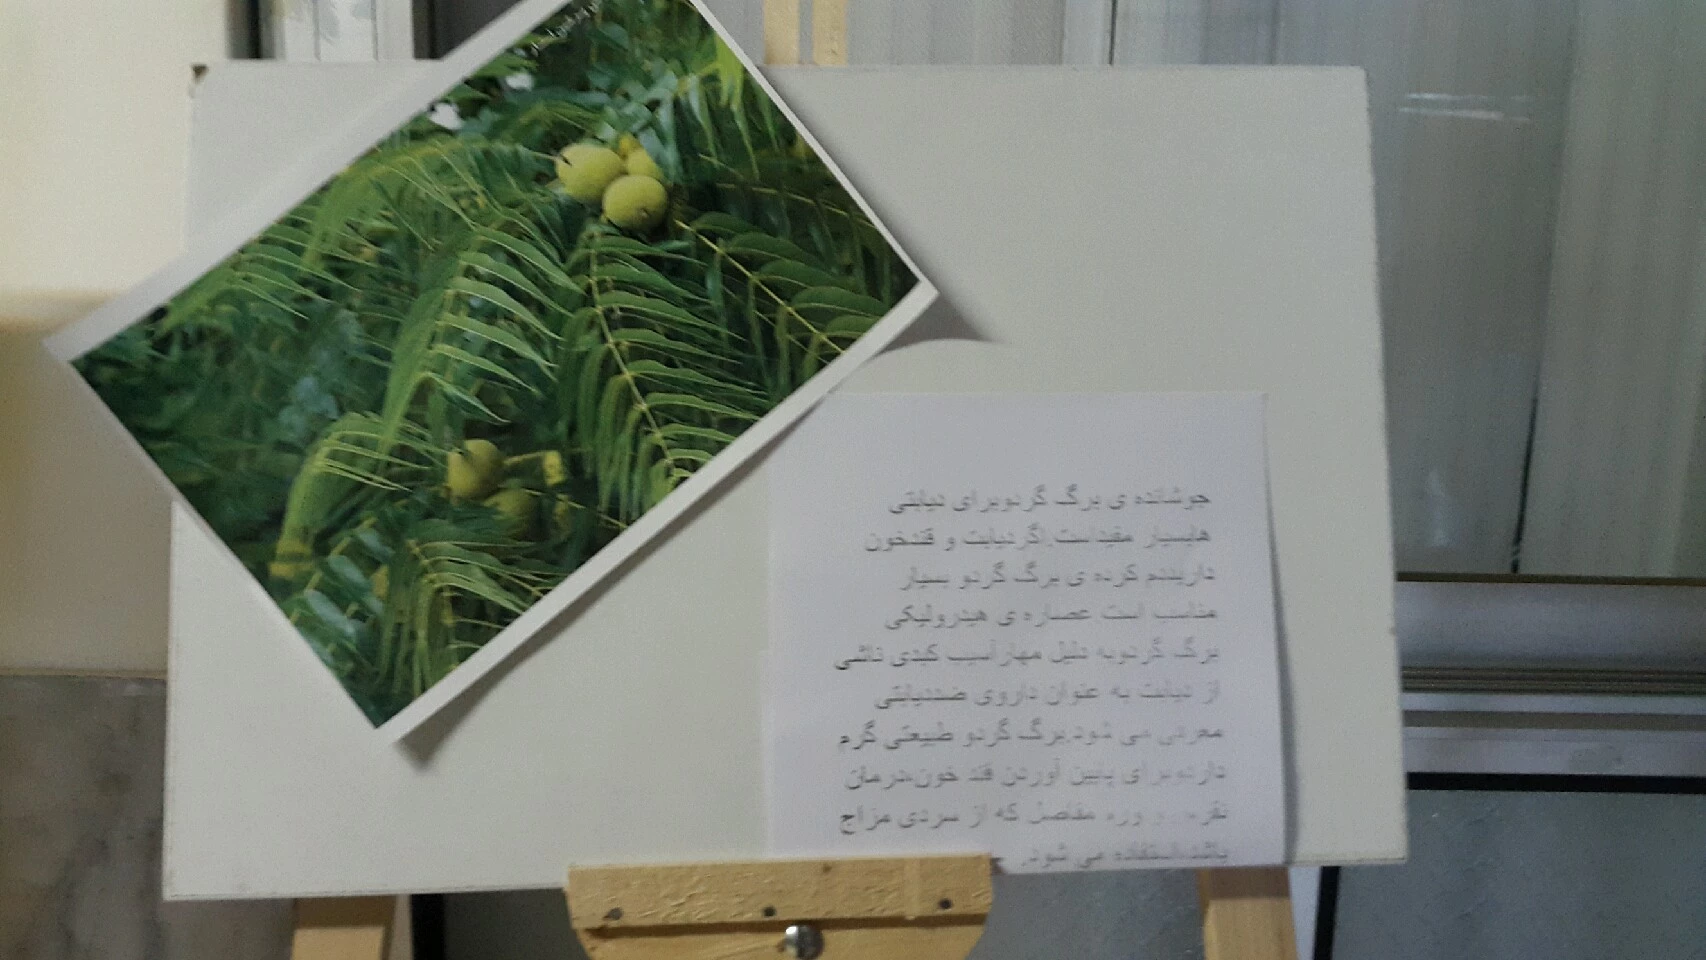 جوشانده ی برگ گردوبرای دیابتی
هابسیار مفیداست.اگردیابت و قندخون
داریددم کرده ی برگ گردو بسیار
مناسب است عصاره ی هیدرولیکی
برگ گردوبه دلیل مهارآسیب کبدی ناشی
از دیابت به عنوان داروی ضددیابتی
معرفی می شود.برگ گردو طبیعتی گرم
داردوبرای پایین آوردن قند خون،درمان
مفاصل که از سردی مزاج
باشداستفاده می شود.